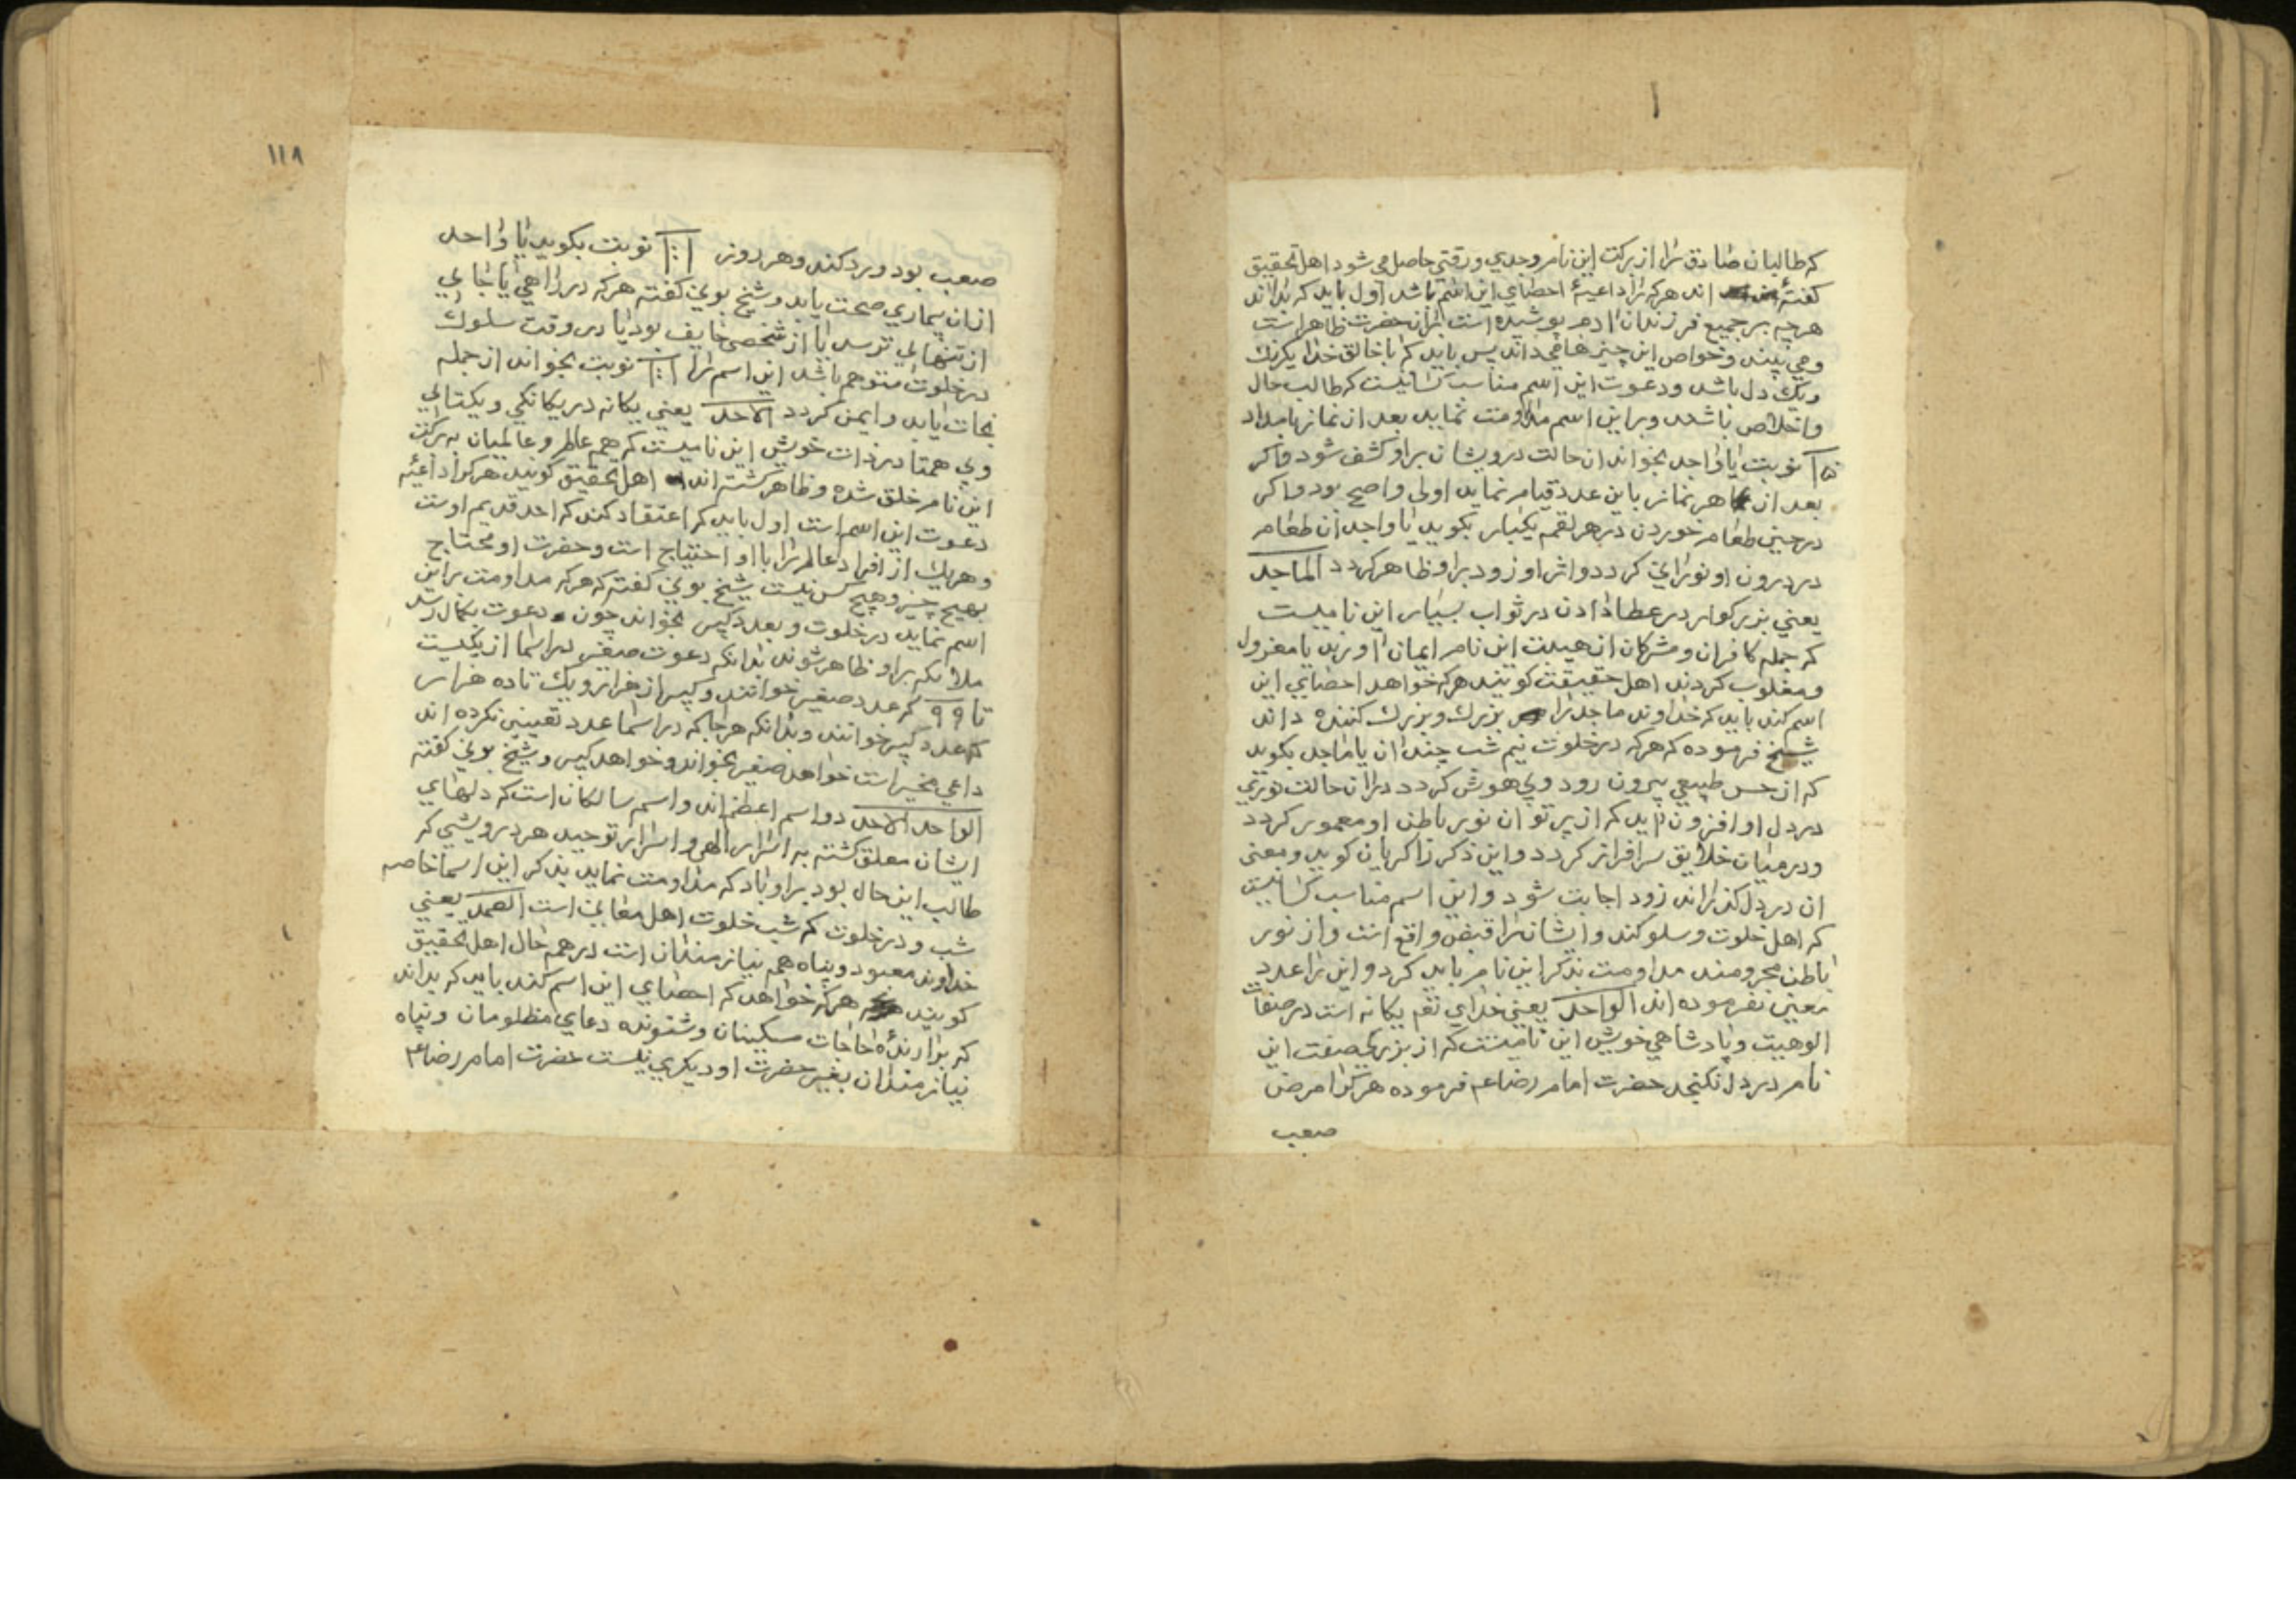 که طالبان صادق را از برکت این نام وجدی و رقتی حاصل می شود اهل تحقیق
گفته اند هر که را داعیهٔ احصای این اسم باشد اول باید که بداند
هرچه بر جمیع فرزندان ادم پوشیده است بران حضرت ظاهر است
و می بیند و خواص این چیزها می داند پس باید که با خالق خدا یکرنك
و یك دل باشد و دعوت این اسم مناسب کسانیست که طالب حال
و اخلاص باشد و بر این اسم مداومت نماید بعد از نماز بامداد
نوبت یا واجد بخواند ان حالت درویشان بر او کشف شود و اکر
بعد از هر نماز باین عدد قیام نماید اولی و اصح بود و اکر
در حین طعام خوردن در هر لقمه یکبار بکوید یا واجد ان طعام
در درون او نورانی کردد و اثر او زود بر او ظاهر کردد الماجد
یعنی بزرکوار در عطا دادن در ثواب بسیار این نامیست
که جمله کافران و مشرکان از هیبت این نام ایمان اورند یا مغرول
و مغلوب کردند اهل حقیقت کویند هر که خواهد احصای این
اسم کند باید که خداوند ماجد را بزرك و بزرك کننده داند
شیخ فرموده که هر که در خلوت نیم شب چندان یا ماجد بکوید
که از حس طبیعی بیرون رود و بی هوش کردد در ان حالت نوری
در دل او افزون اید که از پرتو ان نور باطن او معمور کردد
و در میان خلایق سرافراز کردد و این ذکر را کر بان کوید و معنی
ان در دل کذراند زود اجابت شود و این اسم مناسب کسانیست
که اهل خلوت و سلوکند و ایشان را قبض واقع است و از نور
باطن محرومند مداومت بذکر این نام باید کرد و این را عدد
معین نفرموده اند الواحد یعنی خدای تعم یکانه است در صفات
الوهیت و پادشاهی خویش این نامیست که از بزرکی صفت این
نام در دل نکنجد حضرت امام رضا عم فرموده هر کرا مرض
صعب
۱۱۸
صعب بود ورد کند و هر روز نوبت بکوید یا واحد
ازان بیماری صحت یابد و شیخ بونی کفته هر که در راهی یا جایی
از تنهایی ترسد یا از شخصی خایف بود یا در وقت سلوك
در خلوت متوهم باشد این اسم را نوبت بخواند از جمله
نجات یابد و ایمن کردد الاحد یعنی یکانه در یکانکی و یکتایی
و بی همتا در ذات خویش این نامیست که همه عالم و عالمیان به برکت
این نام خلق شده و ظاهر کشته اند اهل تحقیق کویند هر کرا داعیهٔ
دعوت این اسم است اول باید که اعتقاد کند که احد قدیم اوست
و هر یك از افراد عالم را با او احتیاج است و حضرت او محتاج
بهیچ چیز و هیچ کس نیست شیخ بونی کفته که هر که مداومت بر این
اسم نماید در خلوت و بعدد کبیر بخواند چون دعوت بکمال رسد
ملائکه بر او ظاهر شوند بدانکه دعوت صغیر در اسما از یکیست
تا ۹۹ که عدد صغیر خوانند و کبیر از هزار و یك تا ده هزار
که عدد کبیر خوانند و بدانکه هر جا که در اسما عدد تعیین نکرده اند
داعی مخیر است خواهد صغیر بخواند و خواهد کبیر و شیخ بونی کفته
الواحد الاحد دو اسم اعظم اند و اسم سالکان است که دلهای
ایشان معلق کشته به اسرار الهی و اسرار توحید هر درویشی که
طالب این حال بود بر او باد که مداومت نماید بذکر این اسما خاصه
شب و در خلوت که شب خلوت اهل معانی است الصمد یعنی
خداوند معبود و پناه همه نیازمندان است در همه حال اهل تحقیق
کویند هر که خواهد که احصای این اسم کند باید که بداند
که برارندهٔ حاجات مسکینان و شنونده دعای مظلومان و پناه
نیازمندان بغیر حضرت او دیکری نیست حضرت امام رضا عم